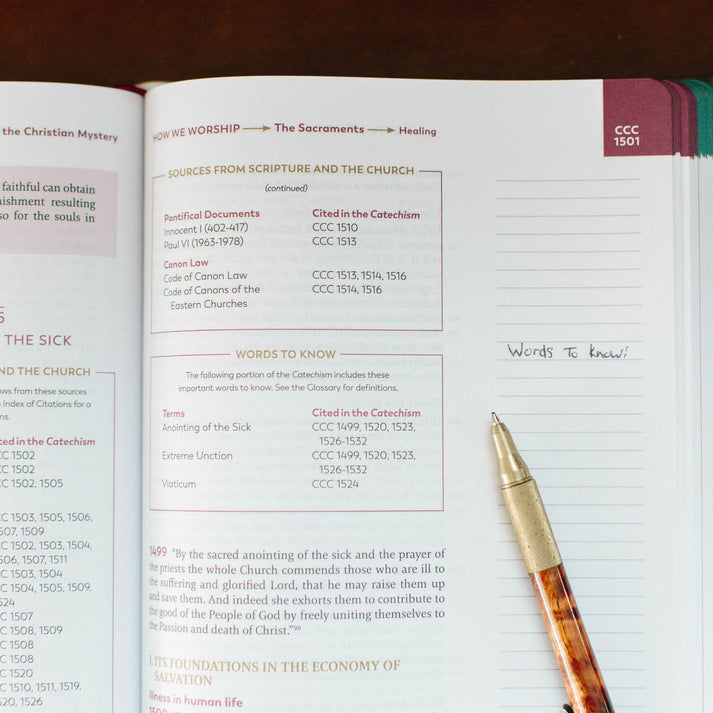 the Christian Mystery
faithful can obtain
resulting
so for the souls in
THE SICK
ND THE CHURCH
from these sources
Index of Citations for a
Cited in the Catechism
CCC 1502
CCC 1502
CCC 1502, 1505
CCC 1503, 1505, 1506,
1507, 1509
CCC 1502, 1503, 1504,
1506, 1507, 1511
CCC 1503, 1504
CCC 1504, 1505, 1509,
1524
CCC 1507
CCC 1508, 1509
CCC 1508
CCC 1508
CCC 1520
CCC 1510, 1511, 1519,
1520, 1526
HOW WE WORSHIP → The Sacraments → Healing
CCC
1501
SOURCES FROM SCRIPTURE AND THE CHURCH
(continued)
Pontifical Documents Cited in the Catechism
Innocent I (402-417) CCC 1510
Paul VI (1963-1978) CCC 1513
Canon Law
Code of Canon Law CCC 1513, 1514, 1516
Code of Canons of the CCC 1514, 1516
Eastern Churches
WORDS TO KNOW
The following portion of the Catechism includes these
important words to know. See the Glossary for definitions.
Terms Cited in the Catechism
Anointing of the Sick CCC 1499, 1520, 1523,
1526-1532
Extreme Unction CCC 1499, 1520, 1523,
1526-1532
Viaticum CCC 1524
Words To Know!
1499 "By the sacred anointing of the sick and the prayer of
the priests the whole Church commends those who are ill to
the suffering and glorified Lord, that he may raise them up
and save them. And indeed she exhorts them to contribute to
the good of the People of God by freely uniting themselves to
the Passion and death of Christ."98
I. ITS FOUNDATIONS IN THE ECONOMY OF
SALVATION
Illness in human life